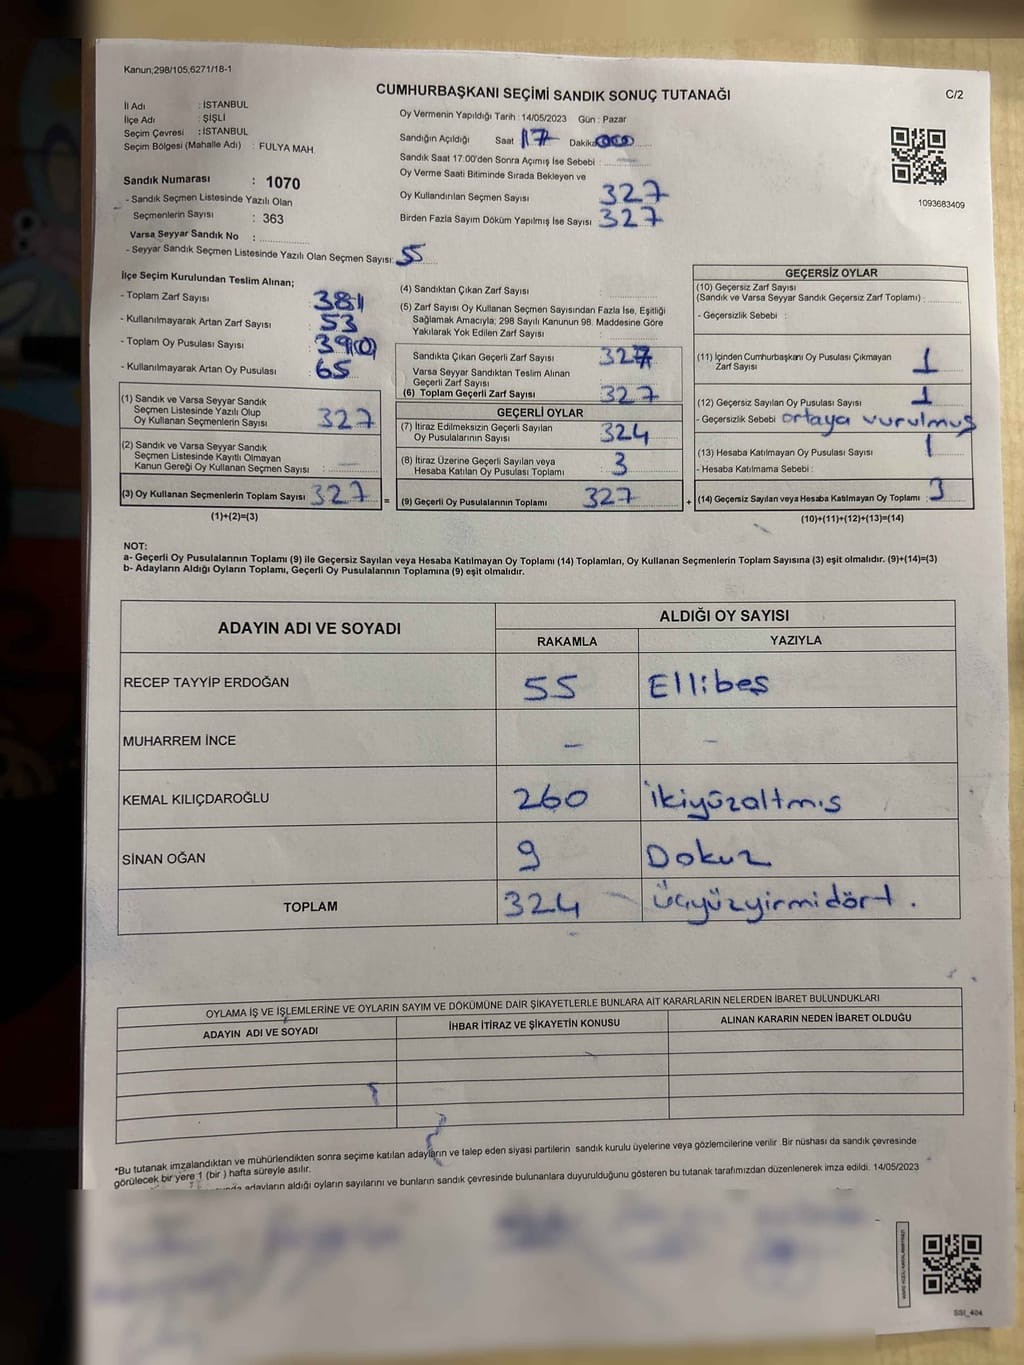 Kanun;298/105,6271/18-1
CUMHURBAŞKANI SEÇİMİ SANDIK SONUÇ TUTANAĞI
C/2
İl Adı : İSTANBUL
İlçe Adı : ŞİŞLİ
Seçim Çevresi : İSTANBUL
Seçim Bölgesi (Mahalle Adı) : FULYA MAH.
Sandık Numarası : 1070
- Sandık Seçmen Listesinde Yazılı Olan
Seçmenlerin Sayısı : 363
Varsa Seyyar Sandık No :
- Seyyar Sandık Seçmen Listesinde Yazılı Olan Seçmen Sayısı: 55
Oy Vermenin Yapıldığı Tarih : 14/05/2023 Gün : Pazar
Sandığın Açıldığı Saat 17 Dakika
Sandık Saat 17:00'den Sonra Açımış İse Sebebi : —
Oy Verme Saati Bitiminde Sırada Bekleyen ve
Oy Kullandırılan Seçmen Sayısı 327
Birden Fazla Sayım Döküm Yapılmış İse Sayısı 327
1093683409
İlçe Seçim Kurulundan Teslim Alınan;
- Toplam Zarf Sayısı : 381
- Kullanılmayarak Artan Zarf Sayısı : 53
- Toplam Oy Pusulası Sayısı : 390
- Kullanılmayarak Artan Oy Pusulası : 65
(1) Sandık ve Varsa Seyyar Sandık
Seçmen Listesinde Yazılı Olup
Oy Kullanan Seçmenlerin Sayısı : 327
(2) Sandık ve Varsa Seyyar Sandık
Seçmen Listesinde Kayıtlı Olmayan
Kanun Gereği Oy Kullanan Seçmen Sayısı : —
(3) Oy Kullanan Seçmenlerin Toplam Sayısı : 327
(1)+(2)=(3)
=
(4) Sandıktan Çıkan Zarf Sayısı :
(5) Zarf Sayısı Oy Kullanan Seçmen Sayısından Fazla İse, Eşitliği
Sağlamak Amacıyla; 298 Sayılı Kanunun 98. Maddesine Göre
Yakılarak Yok Edilen Zarf Sayısı :
Sandıkta Çıkan Geçerli Zarf Sayısı 327
Varsa Seyyar Sandıktan Teslim Alınan
Geçerli Zarf Sayısı
(6) Toplam Geçerli Zarf Sayısı 327
GEÇERLİ OYLAR
(7) İtiraz Edilmeksizin Geçerli Sayılan
Oy Pusulalarının Sayısı 324
(8) İtiraz Üzerine Geçerli Sayılan veya
Hesaba Katılan Oy Pusulası Toplamı 3
(9) Geçerli Oy Pusulalarının Toplamı 327
+
GEÇERSİZ OYLAR
(10) Geçersiz Zarf Sayısı
(Sandık ve Varsa Seyyar Sandık Geçersiz Zarf Toplamı) :
- Geçersizlik Sebebi :
(11) İçinden Cumhurbaşkanı Oy Pusulası Çıkmayan
Zarf Sayısı 1
(12) Geçersiz Sayılan Oy Pusulası Sayısı 1
- Geçersizlik Sebebi : ortaya vurulmuş
(13) Hesaba Katılmayan Oy Pusulası Sayısı 1
- Hesaba Katılmama Sebebi :
(14) Geçersiz Sayılan veya Hesaba Katılmayan Oy Toplamı : 3
(10)+(11)+(12)+(13)=(14)
NOT:
a- Geçerli Oy Pusulalarının Toplamı (9) ile Geçersiz Sayılan veya Hesaba Katılmayan Oy Toplamı (14) Toplamları, Oy Kullanan Seçmenlerin Toplam Sayısına (3) eşit olmalıdır. (9)+(14)=(3)
b- Adayların Aldığı Oyların Toplamı, Geçerli Oy Pusulalarının Toplamına (9) eşit olmalıdır.
ADAYIN ADI VE SOYADI
ALDIĞI OY SAYISI
RAKAMLA YAZIYLA
RECEP TAYYİP ERDOĞAN 55 Ellibeş
MUHARREM İNCE — —
KEMAL KILIÇDAROĞLU 260 ikiyüzaltmış
SİNAN OĞAN 9 Dokuz
TOPLAM 324 üçyüzyirmidört.
OYLAMA İŞ VE İŞLEMLERİNE VE OYLARIN SAYIM VE DÖKÜMÜNE DAİR ŞİKAYETLERLE BUNLARA AİT KARARLARIN NELERDEN İBARET BULUNDUKLARI
ADAYIN ADI VE SOYADI İHBAR İTİRAZ VE ŞİKAYETİN KONUSU ALINAN KARARIN NEDEN İBARET OLDUĞU
*Bu tutanak imzalandıktan ve mühürlendikten sonra seçime katılan adayların ve talep eden siyasi partilerin sandık kurulu üyelerine veya gözlemcilerine verilir. Bir nüshası da sandık çevresinde
görülecek bir yere 1 (bir) hafta süreyle asılır.
adayların aldığı oyların sayılarını ve bunların sandık çevresinde bulunanlara duyurulduğunu gösteren bu tutanak tarafımızdan düzenlenerek imza edildi. 14/05/2023
SSI_404